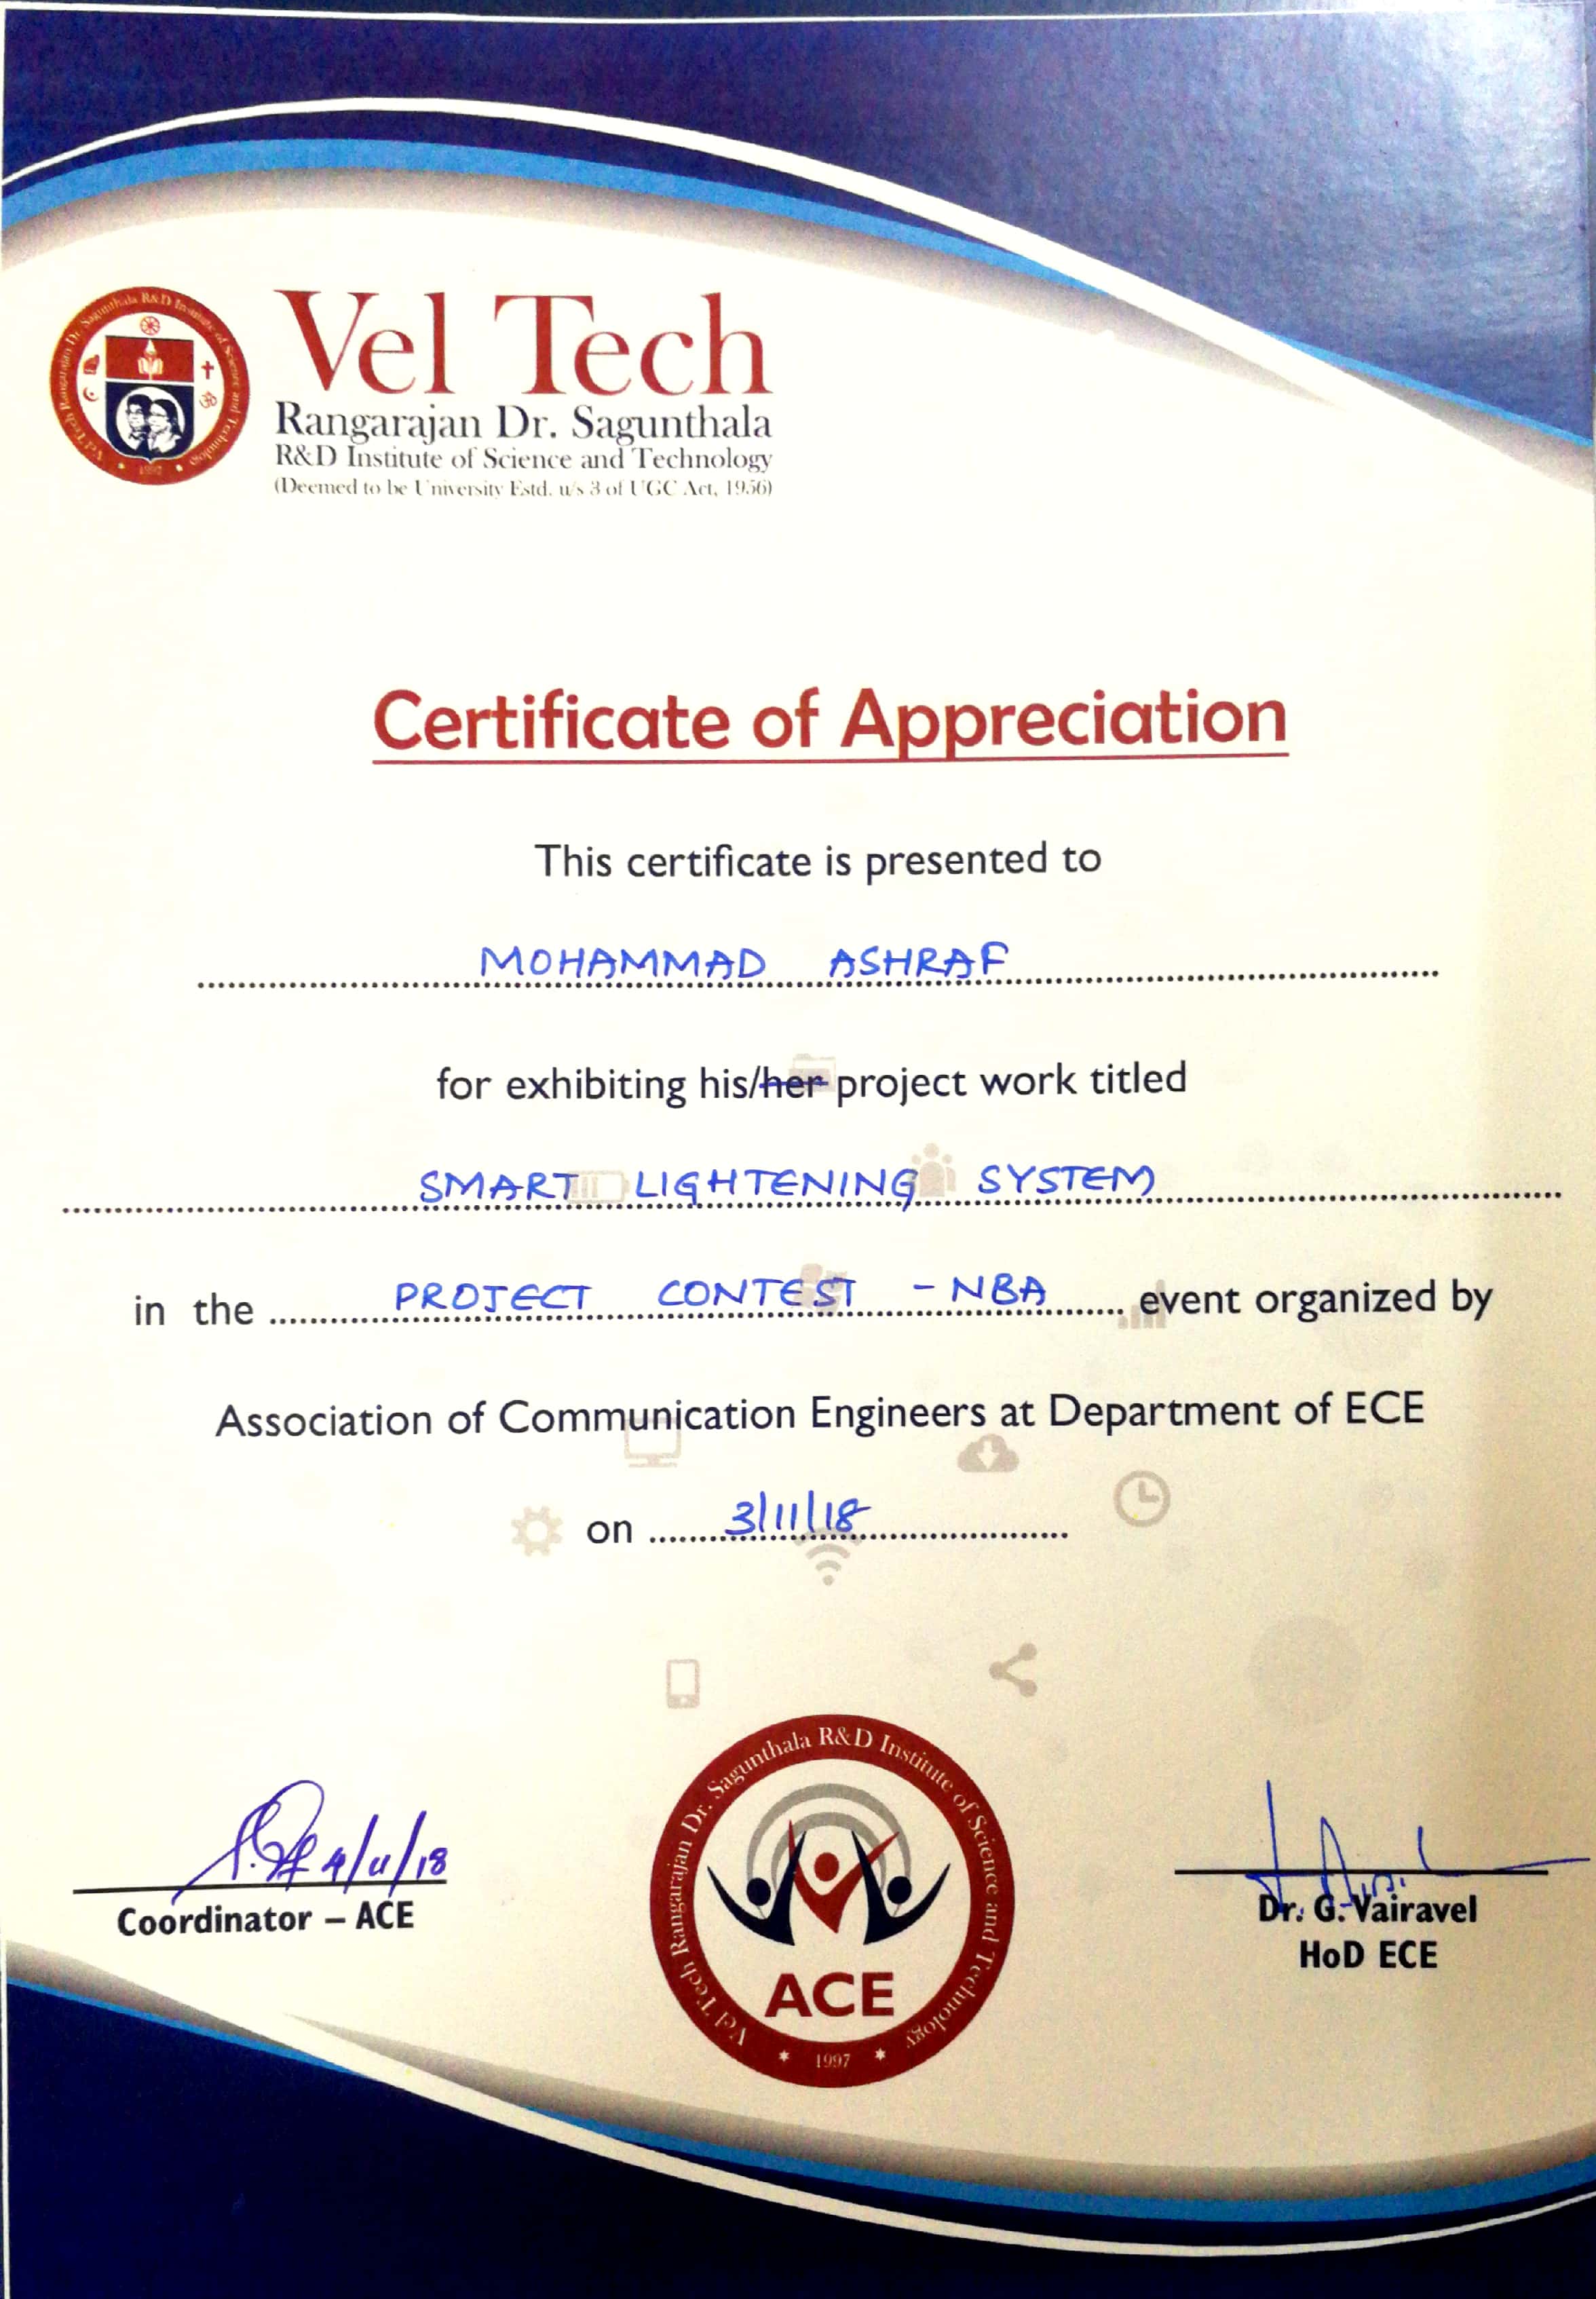 Vel Tech Rangarajan Dr. Sagunthala R&D Institute of Science and Technology
1997
Vel Tech
Rangarajan Dr. Sagunthala
R&D Institute of Science and Technology
(Deemed to be University Estd. u/s 3 of UGC Act, 1956)
Certificate of Appreciation
This certificate is presented to
MOHAMMAD ASHRAF
for exhibiting his/her project work titled
SMART LIGHTENING SYSTEM
in the PROJECT CONTEST - NBA event organized by
Association of Communication Engineers at Department of ECE
on 3/11/18
4/11/18
Coordinator – ACE
Vel Tech Rangarajan Dr. Sagunthala R&D Institute of Science and Technology
ACE
1997
Dr. G. Vairavel
HoD ECE